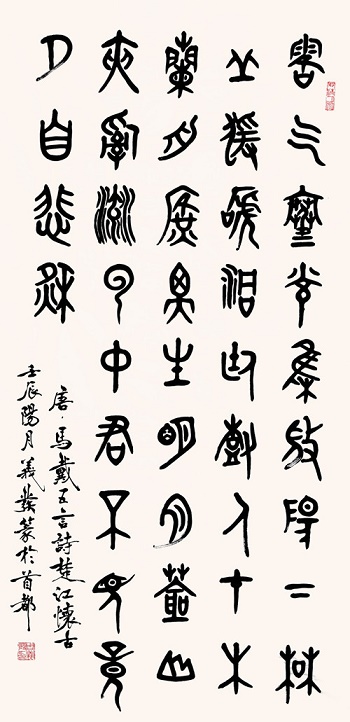 露气寒光集微陽下楚
丘猨啼洞庭樹人在木
蘭舟廣澤生明月蒼山
夾亂流雲中君不見竟
夕自悲秋
唐·馬戴五言詩楚江懷古
壬辰陽月義發篆於首都